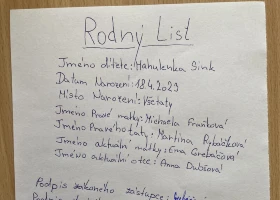 Rodný List
Jméno dítete: Mahulenka Sink
Datum Narození 18.4.2029
Místo Narození: Všetaty
Jméno Pravé matky: Michaela Fraňková
Jméno Pravého táty: Martina Rybáčková
Jméno aktuální matky: Ema Grebáčová
Jméno aktuální otec: Anna Dubšová
Podpis zástupce: